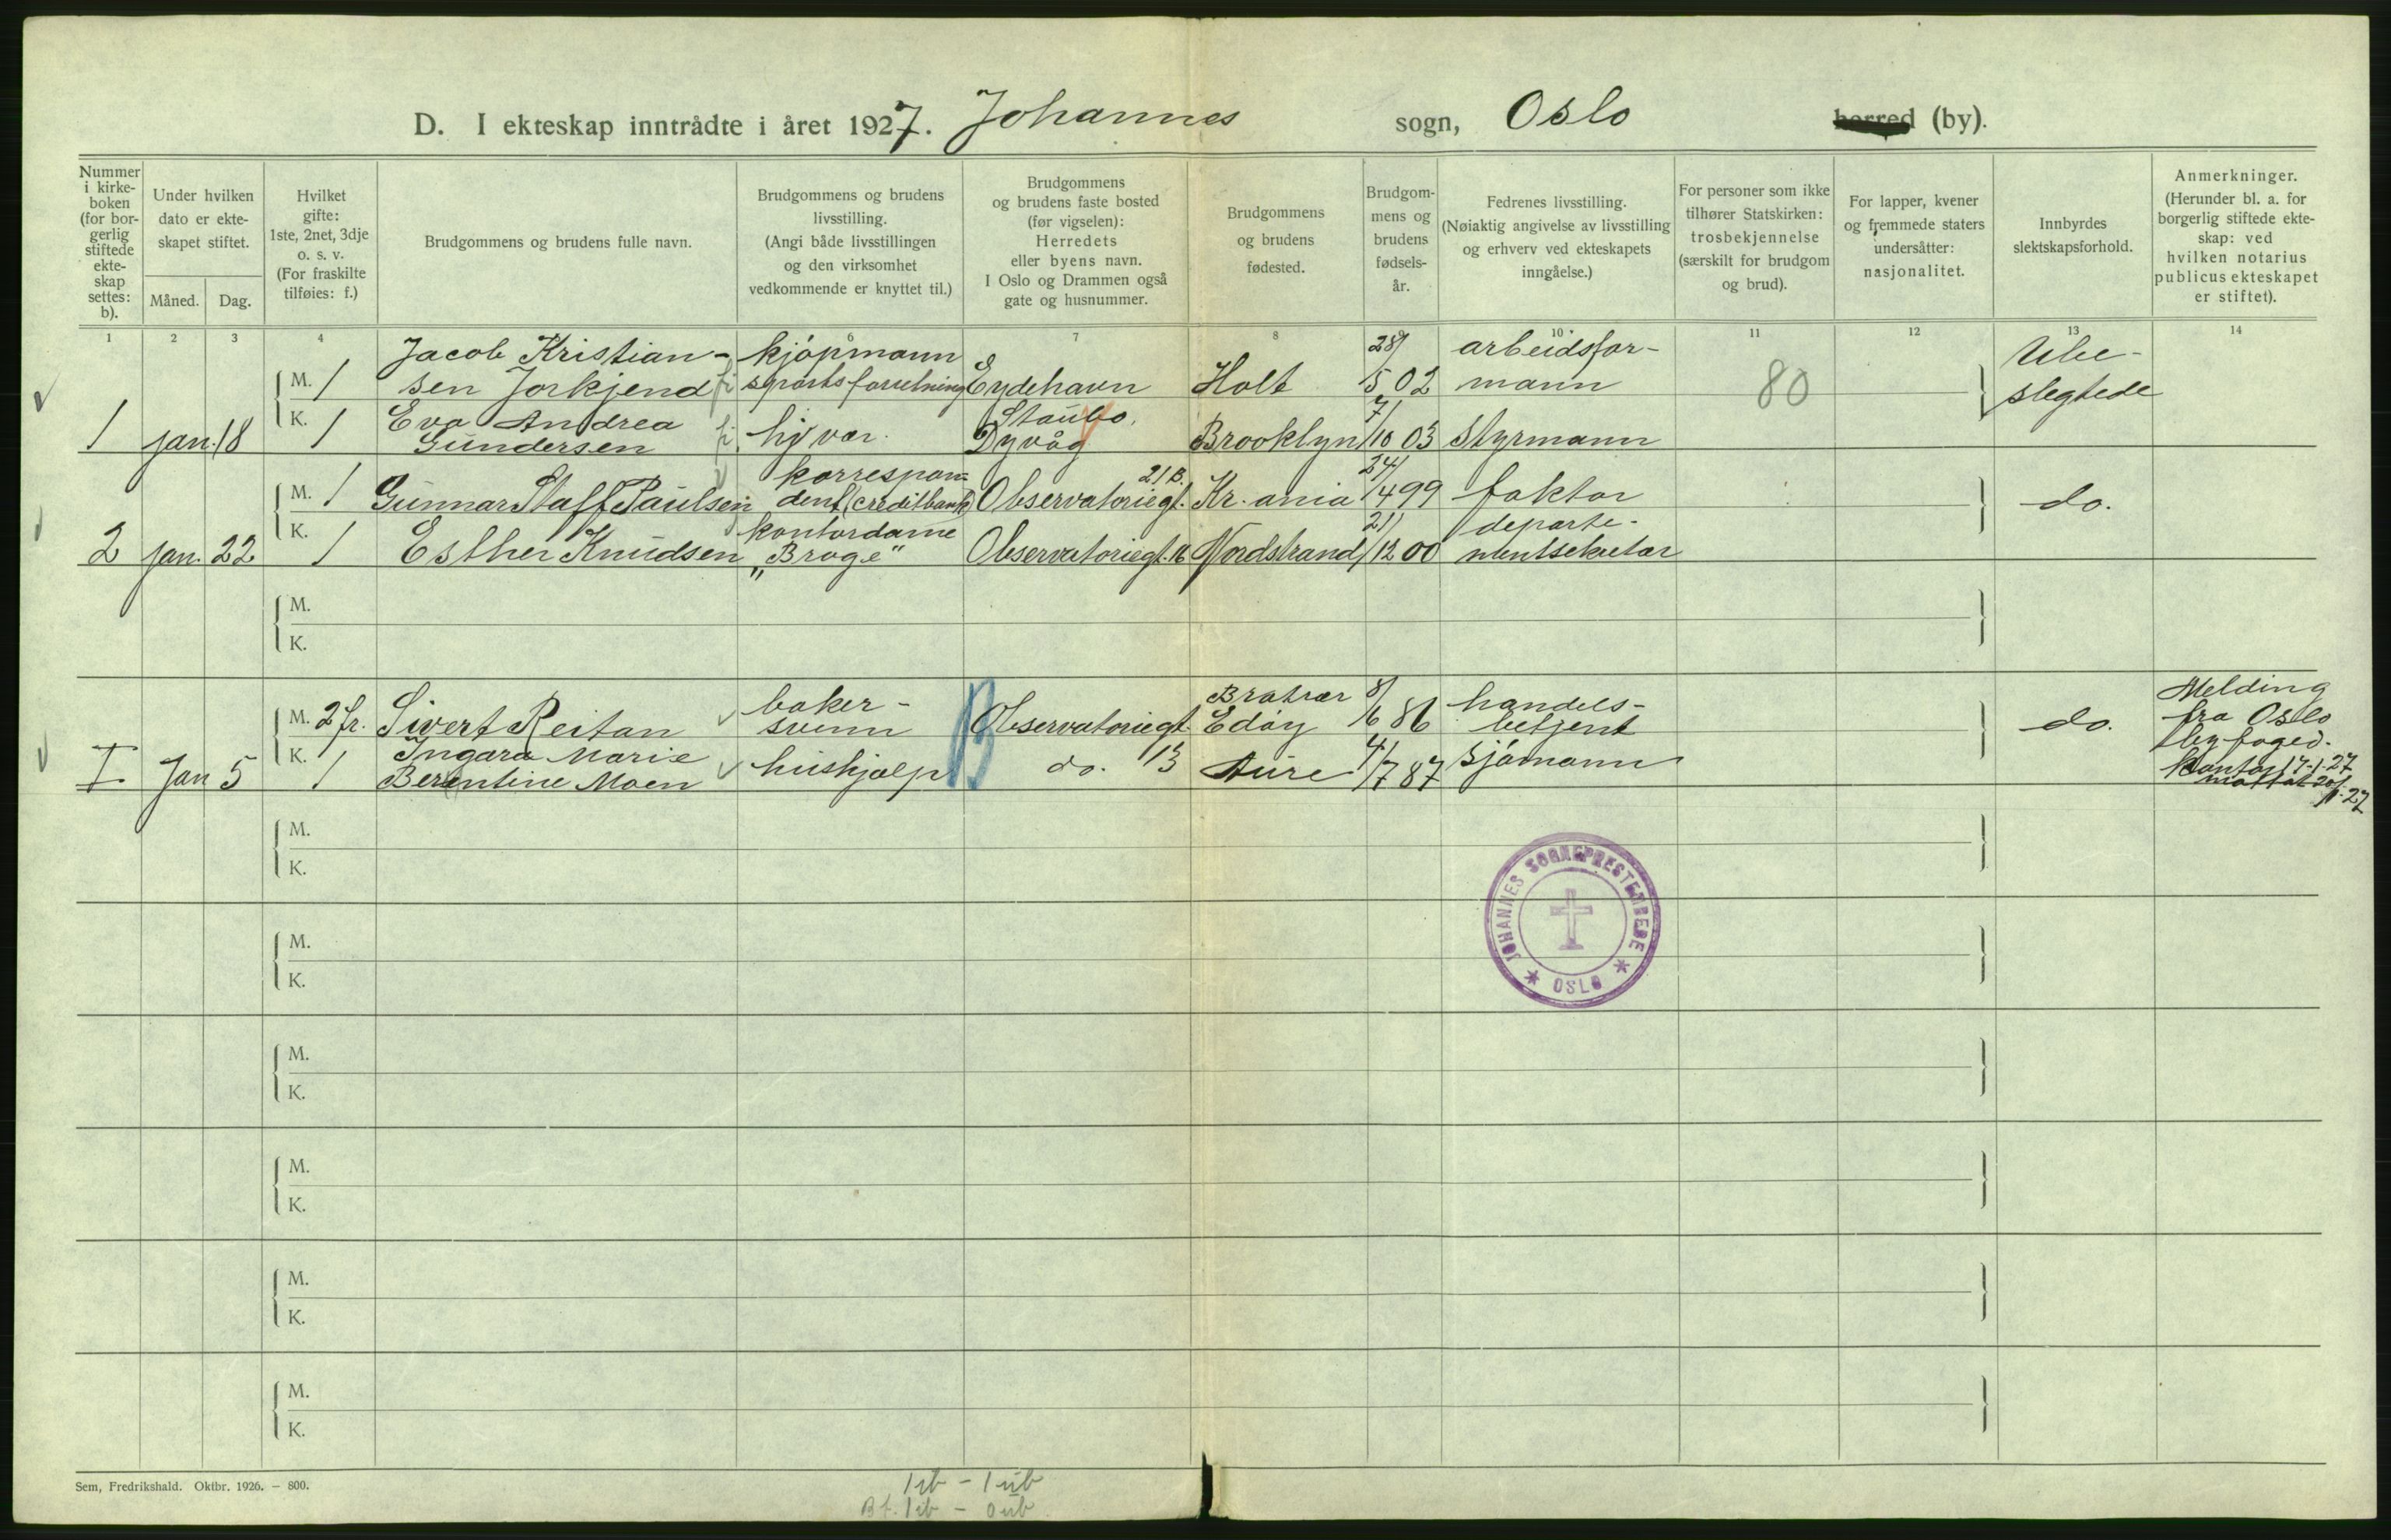 D. I ekteskap inntrådte i året 1927. Johannes sogn, Oslo herred (by).
Nummer
i kirke-
boken
(for bor-
gerlig
stiftede
ekte-
skap
settes:
b).
Under hvilken
dato er ekte-
skapet stiftet.
Måned.
Dag.
Hvilket
gifte:
1ste, 2net, 3dje
o. s. v.
(For fraskilte
tilføies: f.)
Brudgommens og brudens fulle navn.
Brudgommens og brudens
livsstilling.
(Angi både livsstillingen
og den virksomhet
vedkommende er knyttet til.)
Brudgommens
og brudens faste bosted
(før vigselen):
Herredets
eller byens navn.
I Oslo og Drammen også
gate og husnummer.
Brudgommens
og brudens
fødested.
Brudgom-
mens og
brudens
fødsels-
år.
Fedrenes livsstilling.
(Nøiaktig angivelse av livsstilling
og erhverv ved ekteskapets
inngåelse.)
For personer som ikke
tilhører Statskirken:
trosbekjennelse
(særskilt for brudgom
og brud).
For lapper, kvener
og fremmede staters
undersåtter:
nasjonalitet.
Innbyrdes
slektskapsforhold.
Anmerkninger.
(Herunder bl. a. for
borgerlig stiftede ekte-
skap: ved
hvilken notarius
publicus ekteskapet
er stiftet).
1 2 3 4 6 7 8 9 10 11 12 13 14
1 jan. 18
M. 1
Jacob Kristian-
sen Jorkjend
kjøpmann
sportsforretning
Eydehavn
Holt
28/
5 02
arbeidsfor-
mann
80
Ube-
slegtede
K. 1
Eva Andrea
Gundersen
hj. vær.
Staubo,
Dyvåg
Brooklyn
7/
10 03
styrmann
2 jan. 22
M. 1
Gunnar Staff Paulsen
korrespon-
dent (creditbank)
21 B.
Observatoriegt.
Kr.ania
24/
4 99
faktor
do.
K. 1
Esther Knudsen
kontordame
"Brage"
Observatoriegt. 16
Nordstrand
21/
12 00
departe-
mentsekretær
M.
K.
I Jan 5
M. 2 fr.
Sivert Reitan
baker-
svenn
B
Observatoriegt.
Bratvær
Edøy
8/
6 86
handels-
betjent
do.
Melding
fra Oslo
byfoged-
kontor 17-1-27
mottat 20/1-27
K. 1
Ingara Marie
Berentine Moen
hushjælp
do. 13
Aure
4/
7 87
sjømann
M.
K.
JOHANNES SOGNEPRESTEMBEDE
* OSLO *
M.
K.
M.
K.
M.
K.
M.
K.
M.
K.
Sem, Fredrikshald. Oktbr. 1926. — 800.
1 ib - 1 ub
Bf. 1 ib - 0 ub